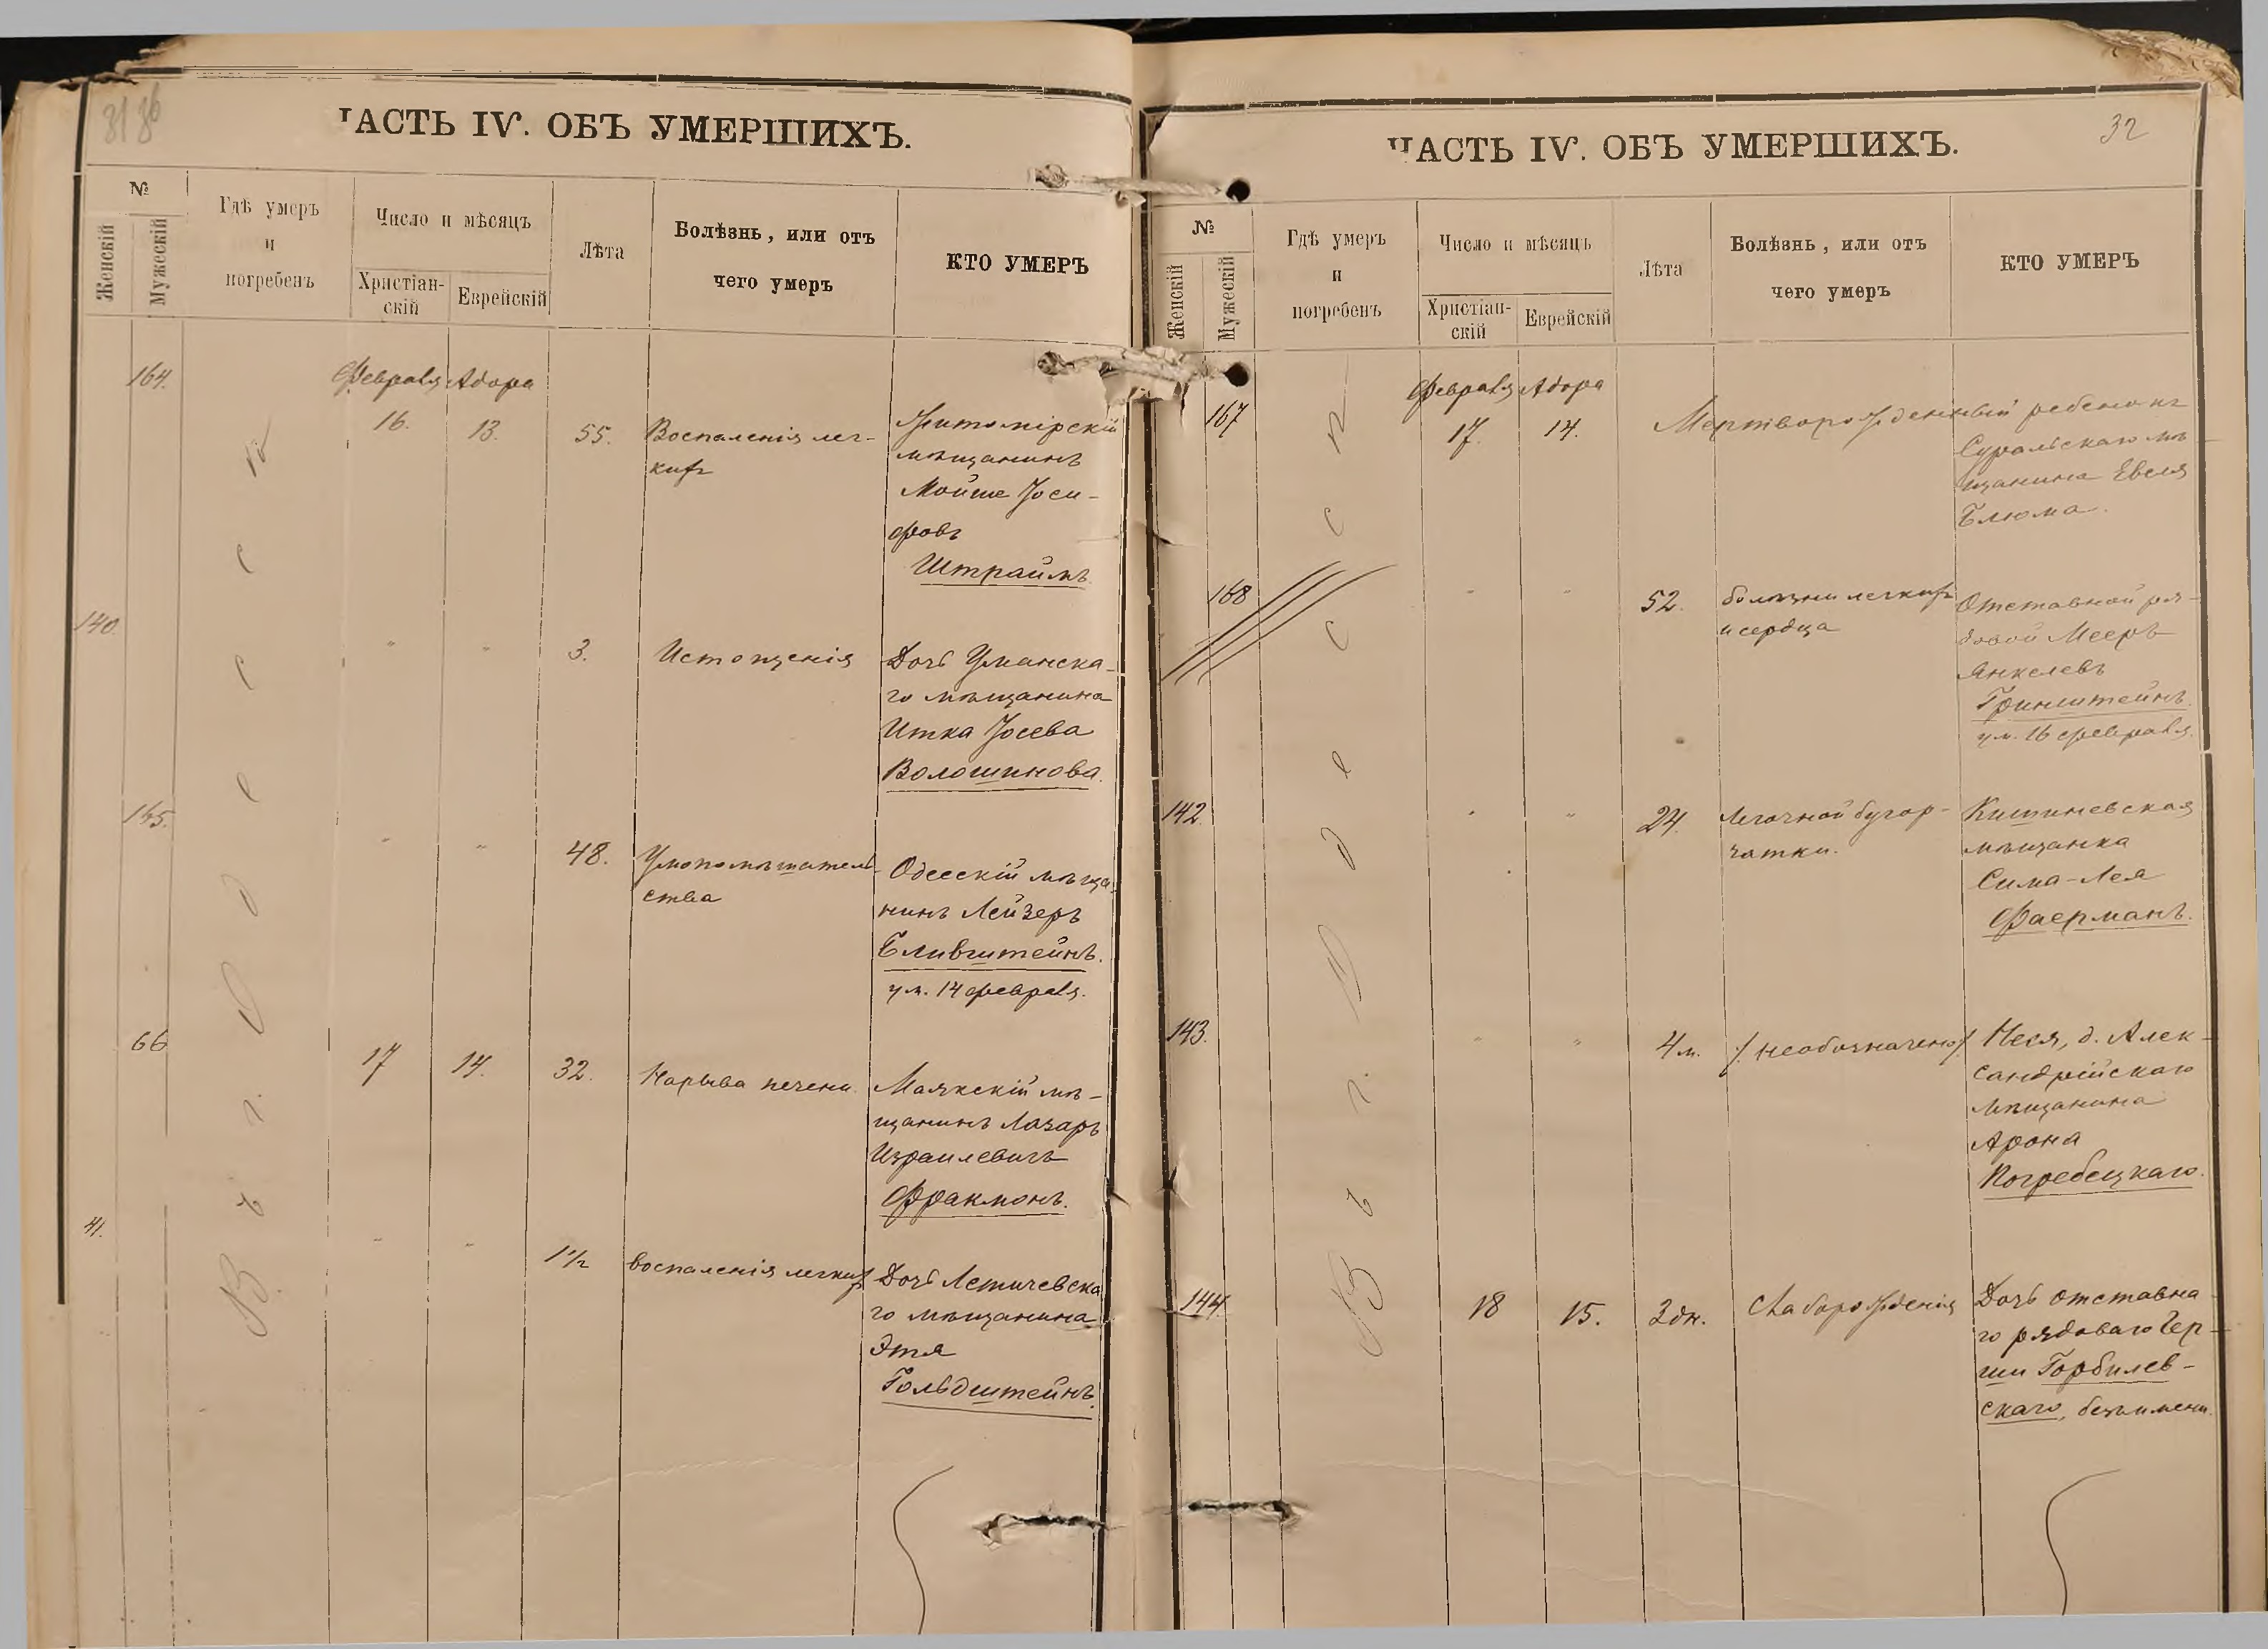 31 36
ЧАСТЬ IV. ОБЪ УМЕРШИХЪ.
№
Женскій
Мужескій
Гдѣ умеръ
и
погребенъ
Число и мѣсяцъ
Христіан-
скій
Еврейскій
Лѣта
Болѣзнь, или отъ
чего умеръ
КТО УМЕРЪ
Въ г. Одессѣ
164.
Февраля Адора
16. 13. 55.
Воспаленія лег-
кихъ
Житомірскій
мѣщанинъ
Мойше Іоси-
фовъ
Штраймъ.
140.
" " 3. Истощенія
Дочь Уманска-
го мѣщанина
Итка Іосева
Волошинова.
165.
" " 48. Умопомѣшатель-
ства
Одесскій мѣща-
нинъ Лейзеръ
Бливштейнъ.
ум. 14 февраля.
66
17 14. 32. Нарыва печени.
Маякскій мѣ-
щанинъ Лазарь
Израилевичъ
Факмонъ.
41.
" " 1½ воспаленія легкихъ
Дочь Летичевска
го мѣщанина
Этя
Гольдштейнъ.
32
ЧАСТЬ IV. ОБЪ УМЕРШИХЪ.
№
Женскій
Мужескій
Гдѣ умеръ
и
погребенъ
Число и мѣсяцъ
Христіан-
скій
Еврейскій
Лѣта
Болѣзнь, или отъ
чего умеръ
КТО УМЕРЪ
Въ г. Одессѣ
167
Февраля Адора
17. 14.
Мертворожденный ребенокъ
мѣ
щанина Евеля
Блюма.
168
" " 52. болѣзни легкихъ
и сердца
Отставной ря-
довой Мееръ
Янкелевъ
Гринштейнъ.
ум. 16 февраля.
142.
" " 24. Легочной бугор-
чатки.
Кишиневская
мѣщанка
Сима-Лея
Фаерманъ.
143.
" " 4 м. /необозначено/
Неся, д. Алек-
сандрійскаго
мѣщанина
Арона
Погребецкаго.
144.
18 15. 3 дн. Слаборожденія
Дочь отставна-
го рядоваго Гер-
ши Горбилев-
скаго, безъ имени.